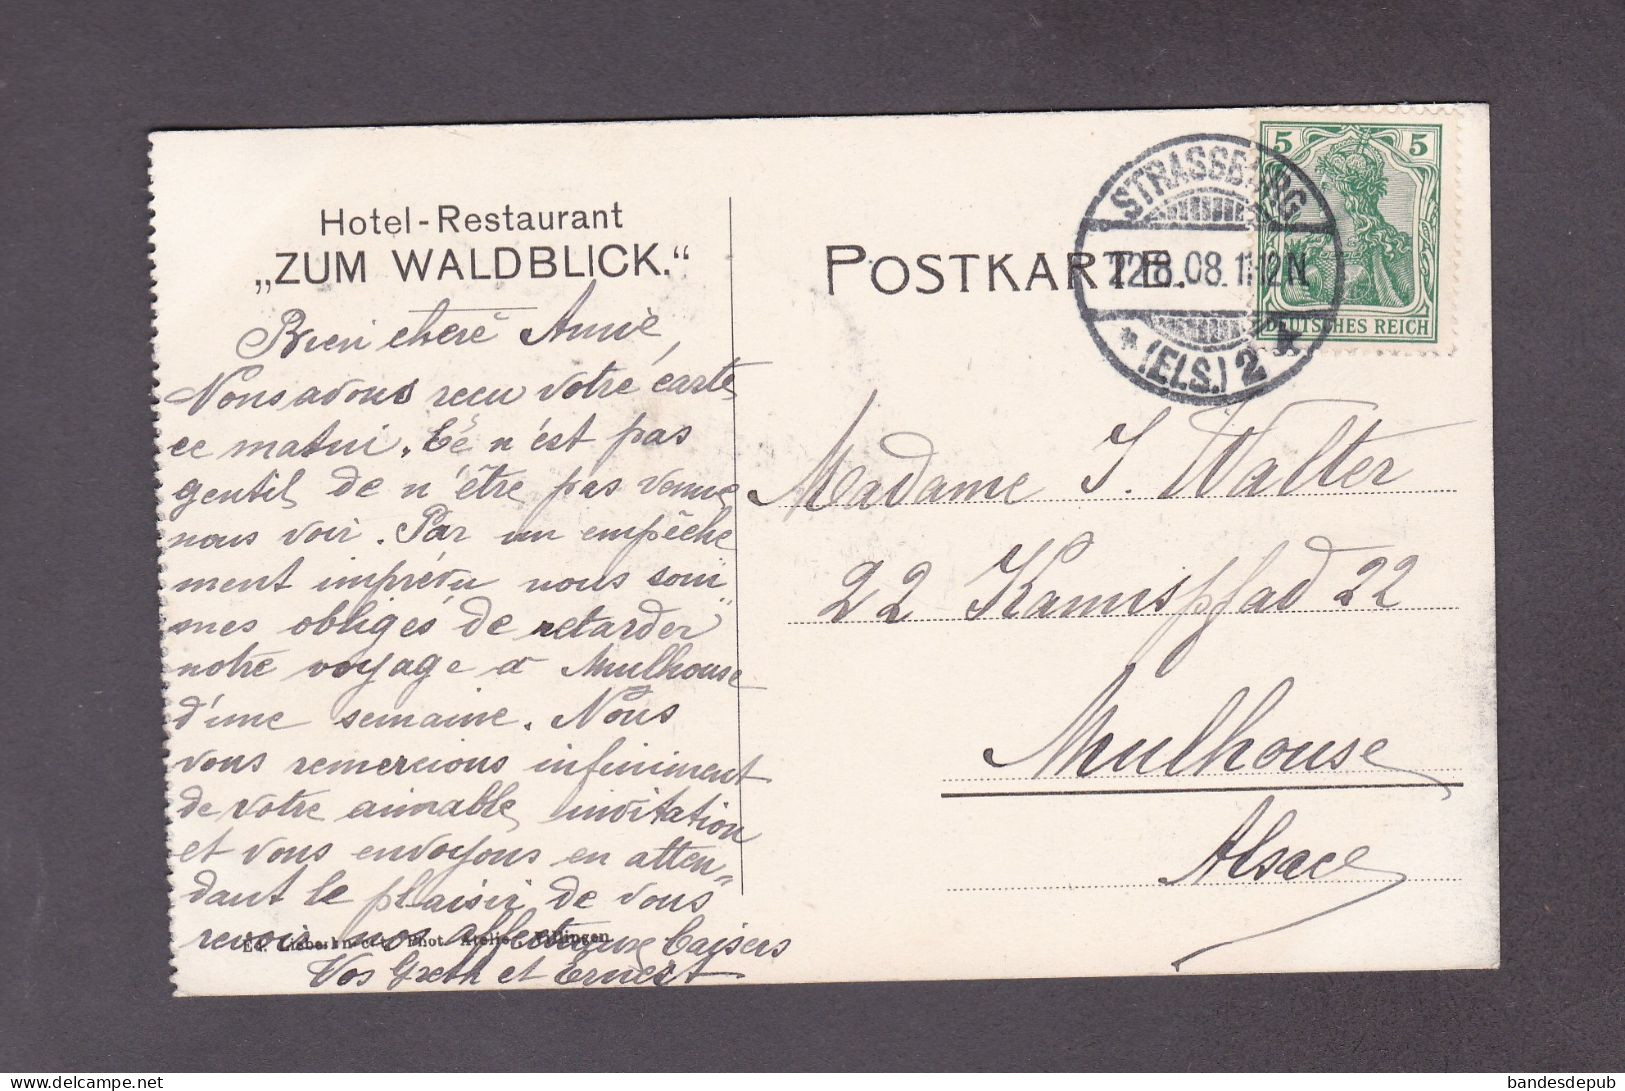 Hotel-Restaurant
„ZUM WALDBLICK."
POSTKARTE.
STRASSBURG
22.8.08. 11-12N
* (ELS.) 2 *
5 5
DEUTSCHES REICH
Bien cheré Annie,
Nous avous recu votré carte
ce matin. Cé n'est pas
gentil de n'être pas venue
nous voir. Par un empêche
ment imprévu nous som„
mes obligés de retarder
notre voyage à Mulhouse
d'une semaine. Nous
vous remercions infiniment
de votre aimable invitation
et vous envoyons en atten„
dant le plaisir de vous
revoir nos affectueux baisers
Vos Greth et Ernest
Phot. Atelier
Madame J. Walter
22 22
Mulhouse
Alsace
bandesdepub